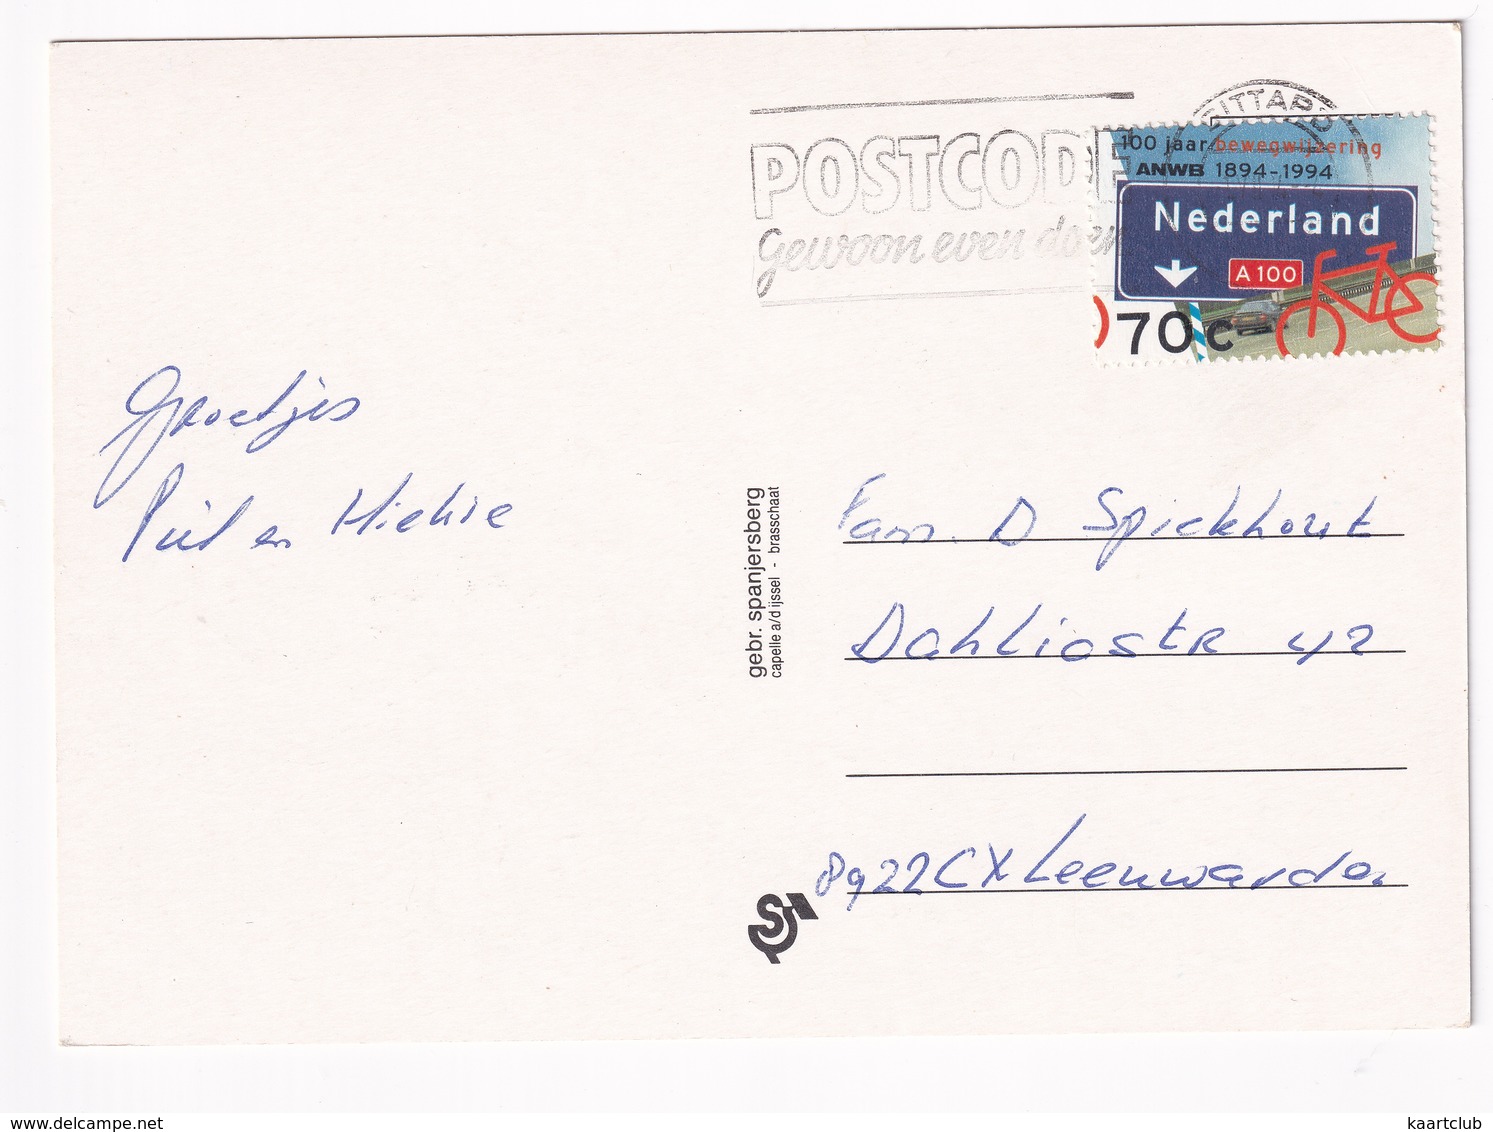 SITTARD
POSTCODE
Gewoon even doen
100 jaar bewegwijzering
ANWB 1894-1994
Nederland
A 100
70c
Groetjes
Piet en Hickie
gebr. spanjersberg
capelle a/d ijssel - brasschaat
Fam. D Spiekhout
DahliastR 42
8922CX Leeuwarden
S
www.delcampe.net
kaartclub